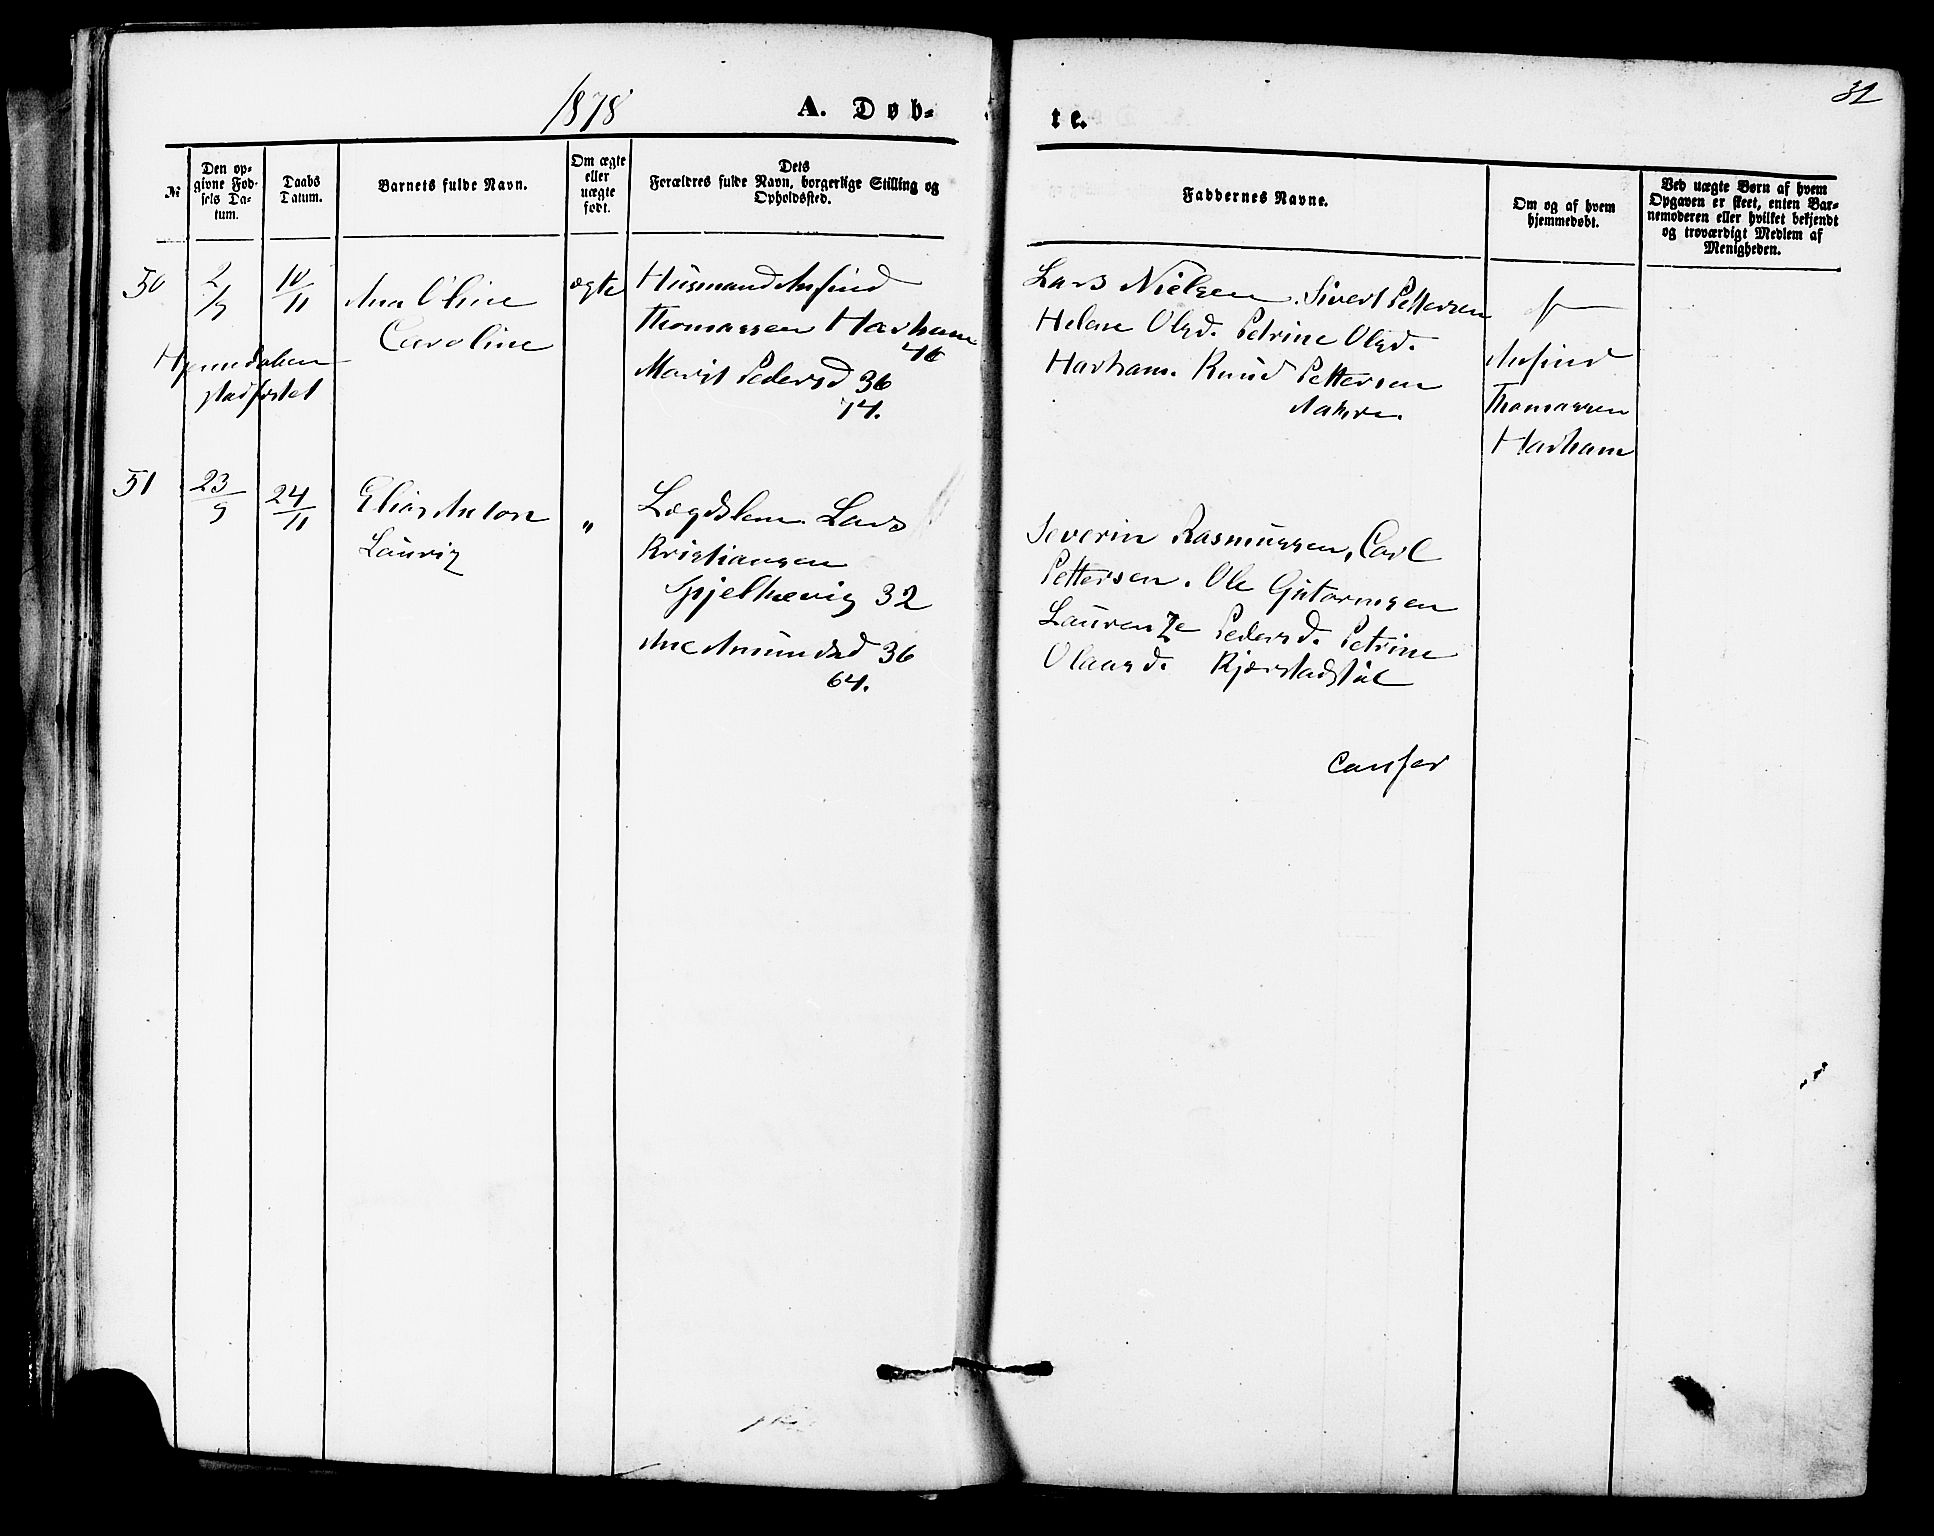 1878
A. Døb-
te.
31
№
Den op-
givne Fød-
sels Da-
tum.
Daabs
Datum.
Barnets fulde Navn.
Om ægte
eller
uægte
født.
Dets
Forældres fulde Navn, borgerlige Stilling og
Opholdssted.
Faddernes Navne.
Om og af hvem
hjemmedøbt.
Ved uægte Børn af hvem
Opgaven er skeet, enten Bar-
nemoderen eller hvilket bekjendt
og troværdigt Medlem af
Menigheden.
50
2/9
10/11
Ana Oline
Caroline
ægte
Husmand Anfind
Thomassen Harham
46
Marit Pedersd 36
74.
Hjemmedaaben
stadfæstet
Lars Nielsen. Sivert Pettersen
Helene Olsd. Petrine Olsd.
Harham. Knud Pettersen
Aakre.
Anfind
Thomassen
Harham
51
23/9
24/11
Elias Anton
Lauriz
"
Lægdslem Lars
Kristiansen
Spjelkevig 32
Ane Amundsd 36
64.
Severin Rasmussen, Carl
Pettersen. Ole Gutormsen
Laurenze Pedersd. Petrine
Olausd. Kjærstadstøl